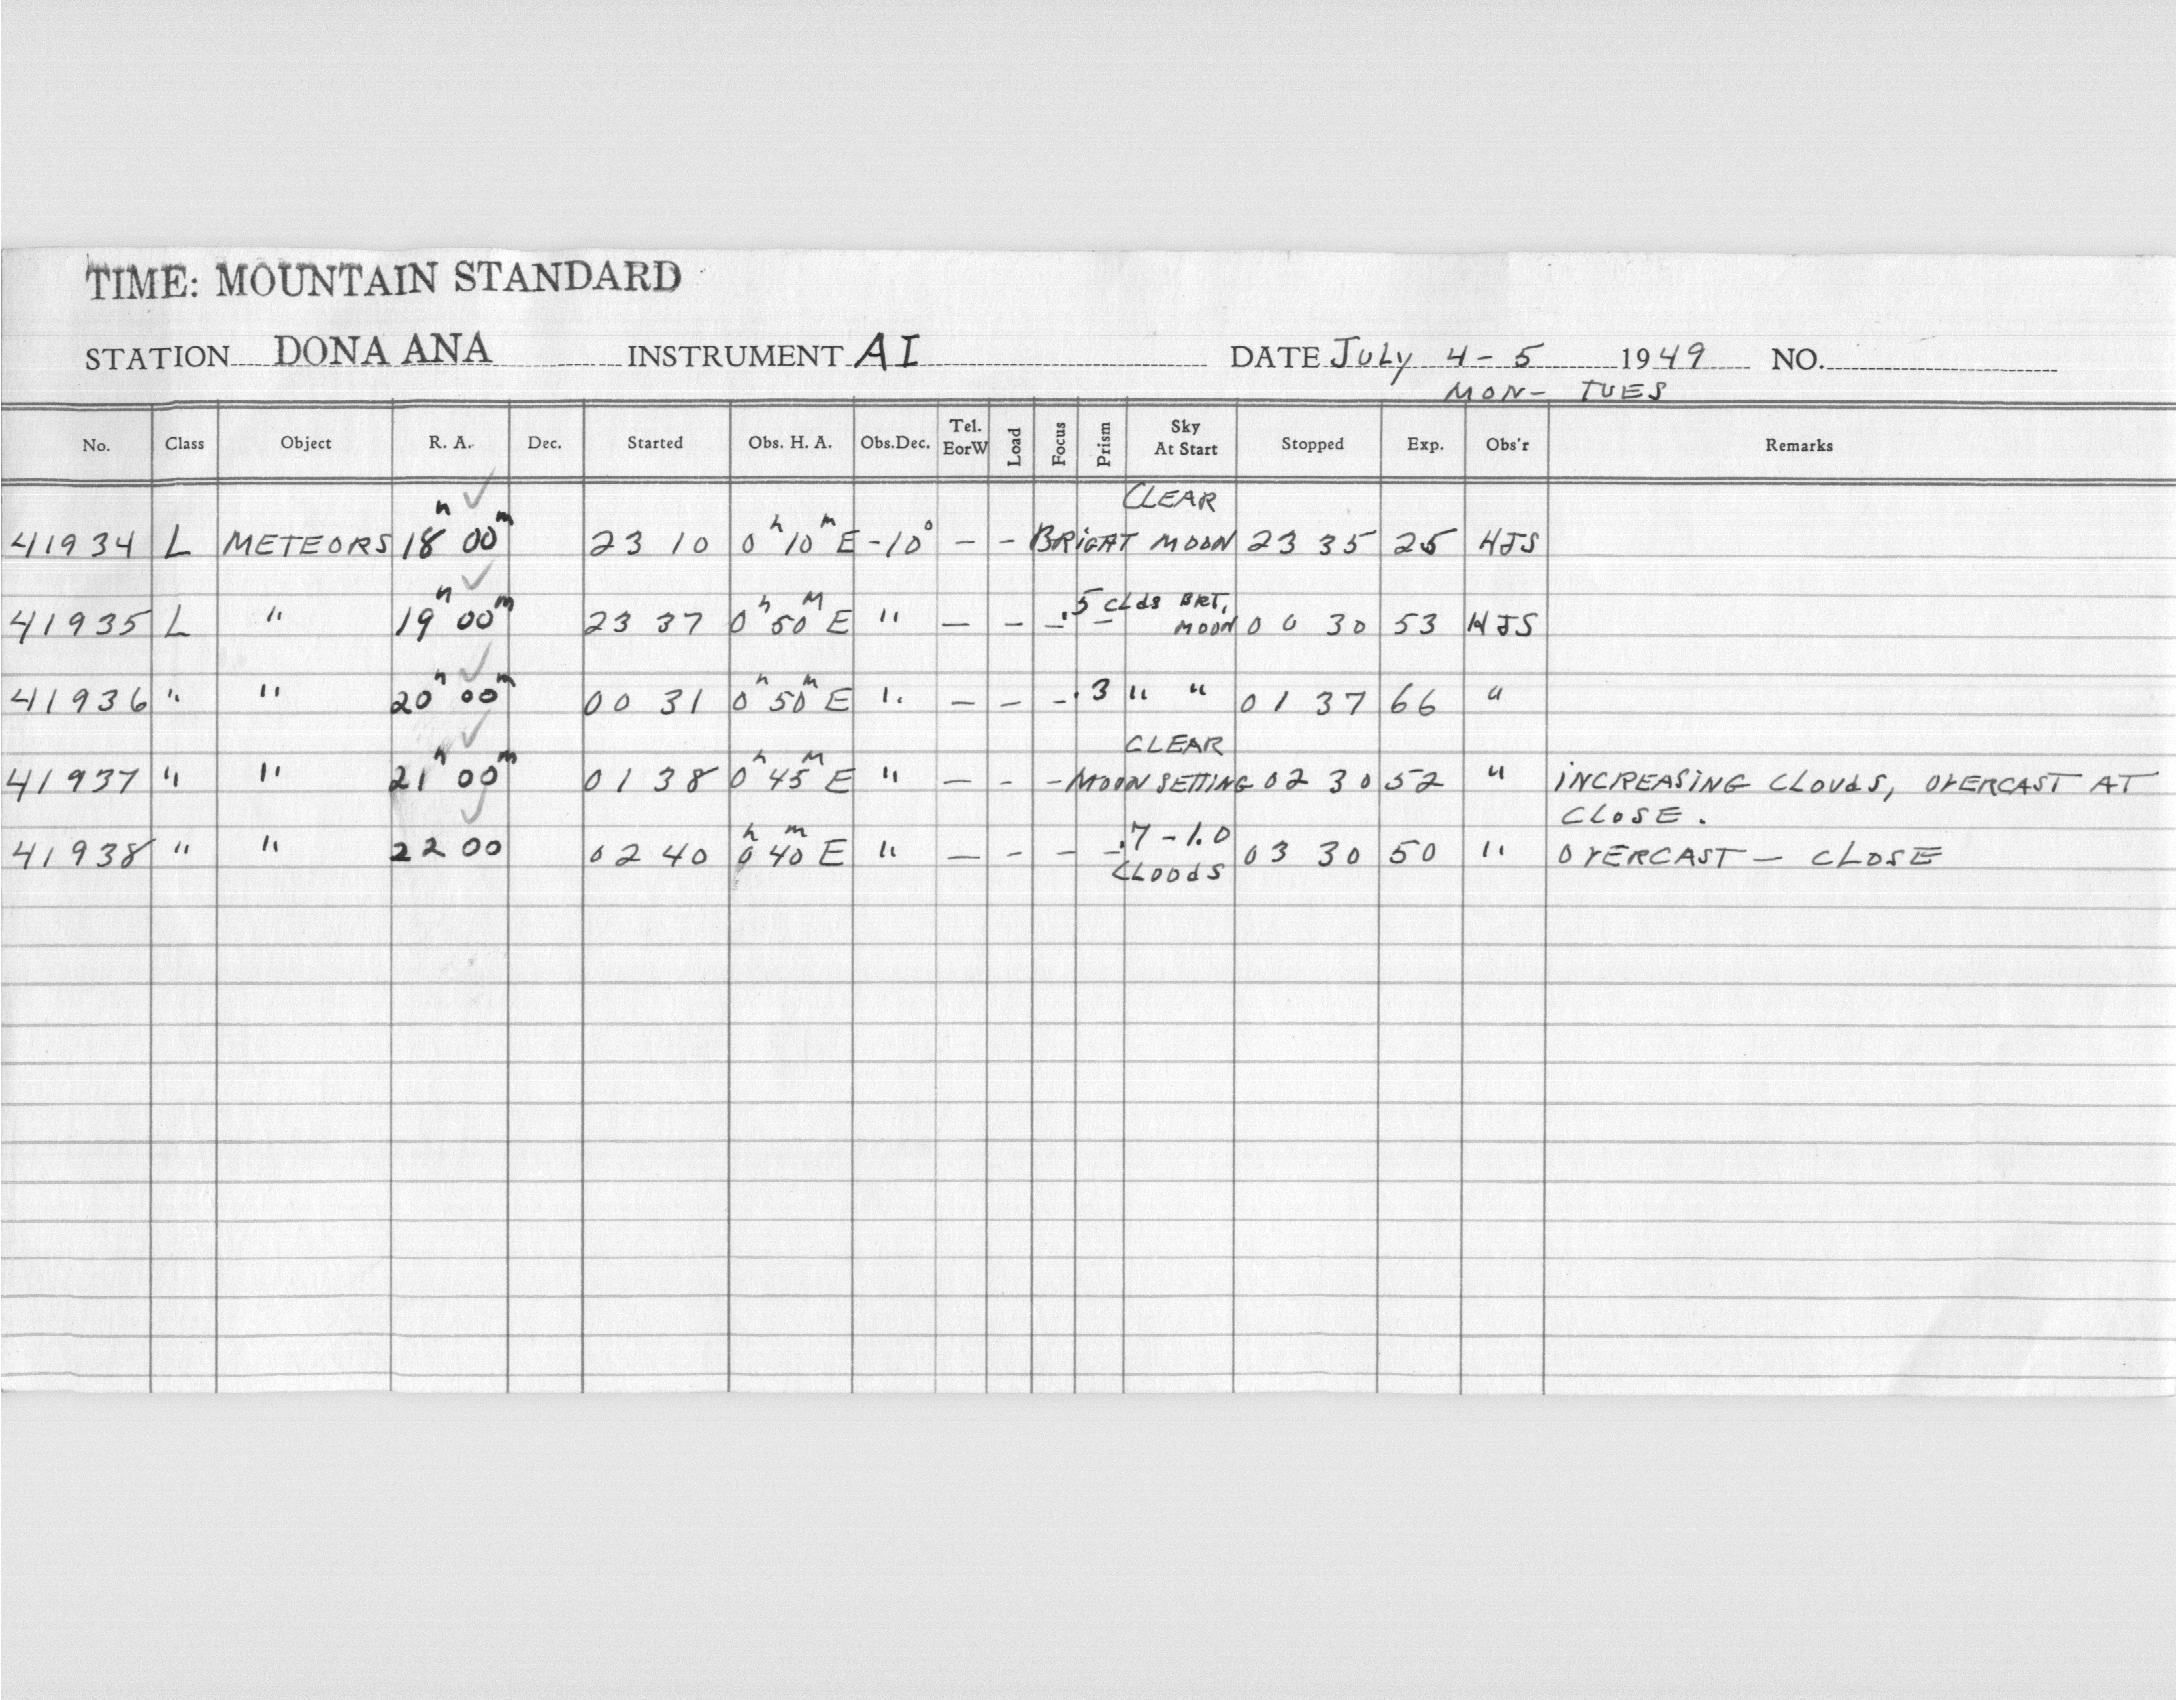 TIME: MOUNTAIN STANDARD
STATION DONA ANA INSTRUMENT AI DATE JULY 4-5 1949 NO.
MON- TUES
No. Class Object R. A. Dec. Started Obs. H. A. Obs.Dec. Tel. EorW Load Focus Prism Sky At Start Stopped Exp. Obs'r Remarks
CLEAR
41934 L METEORS 18h 00m 23 10 0h 10m E -10° — – BRiGHT MOON 23 35 25 HJS
.5 CLds BRT,
41935 L " 19h 00m 23 37 0h 50m E " — – – – MOON 00 30 53 HJS
41936 " " 20h 00m 00 31 0h 50m E " — – – .3 " " 01 37 66 "
CLEAR
41937 " " 21h 00m 01 38 0h 45m E " — – – MOON SETTING 02 30 52 " iNCREASiNG CLOUdS, OVERCAST AT
CLOSE.
.7 - 1.0
41938 " " 22 00 02 40 0h 40m E " — – – – 03 30 50 " OVERCAST — CLOSE
CLOOdS